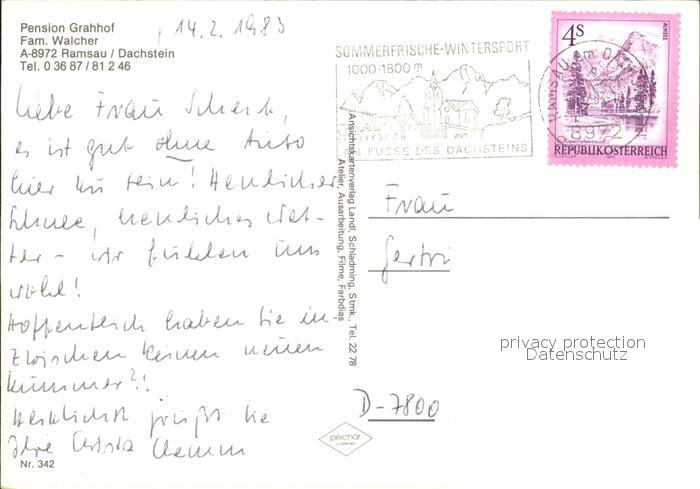 Pension Grahhof
Fam. Walcher
A-8972 Ramsau / Dachstein
Tel. 0 36 87 / 81 2 46
14.2.1983
Liebe Frau
es ist gut ohne Auto
hier zu sein! Herrlicher
Schnee, herrliches Wet-
ter - wir fühlen uns
wohl!
Hoffentlich haben Sie in-
zwischen keinen neuen
Kummer?!
Herzlichst grüßt Sie
Ihre Christa
Nr. 342
SOMMERFRISCHE-WINTERSPORT
1000-1800 m
FUSSE DES DACHSTEINS
RAMSAU am D
8972
4s
ALMSEE
REPUBLIK ÖSTERREICH
Ansichtskartenverlag Landl, Schladming, Stmk., Tel. 22 78
Atelier, Ausarbeitung, Filme, Farbdias
Frau
Gertru
privacy protection
Datenschutz
D-7800